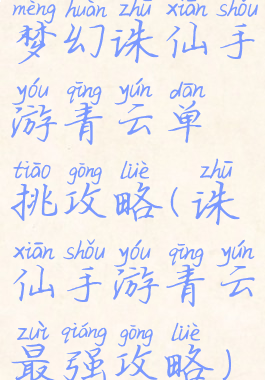 mèng huàn zhū xiān shǒu
梦幻诛仙手
yóu qīng yún dān
游青云单
tiāo gōng lüè zhū
挑攻略(诛
xiān shǒu yóu qīng yún
仙手游青云
zuì qiáng gōng lüè
最强攻略)